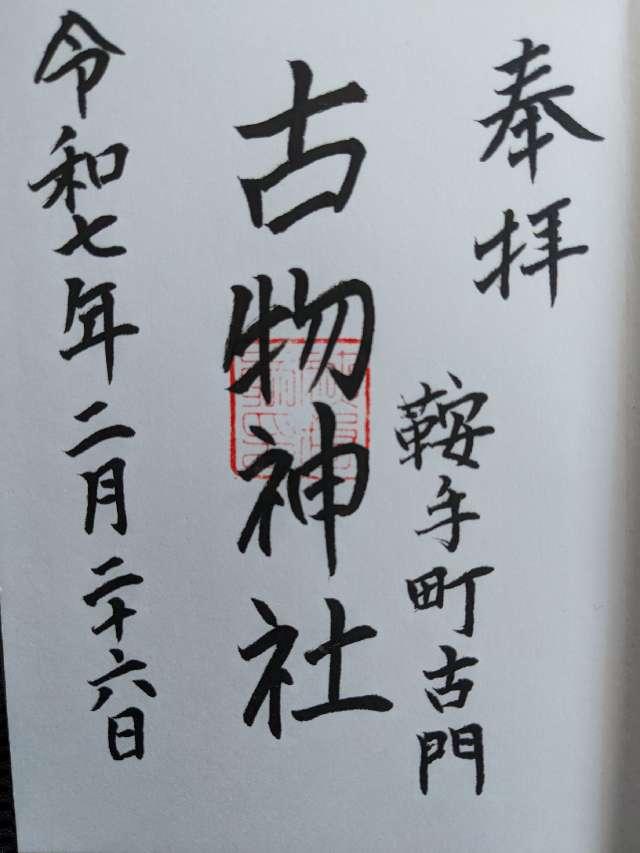 奉拝
鞍手町古門
古物神社
令和七年二月二十六日